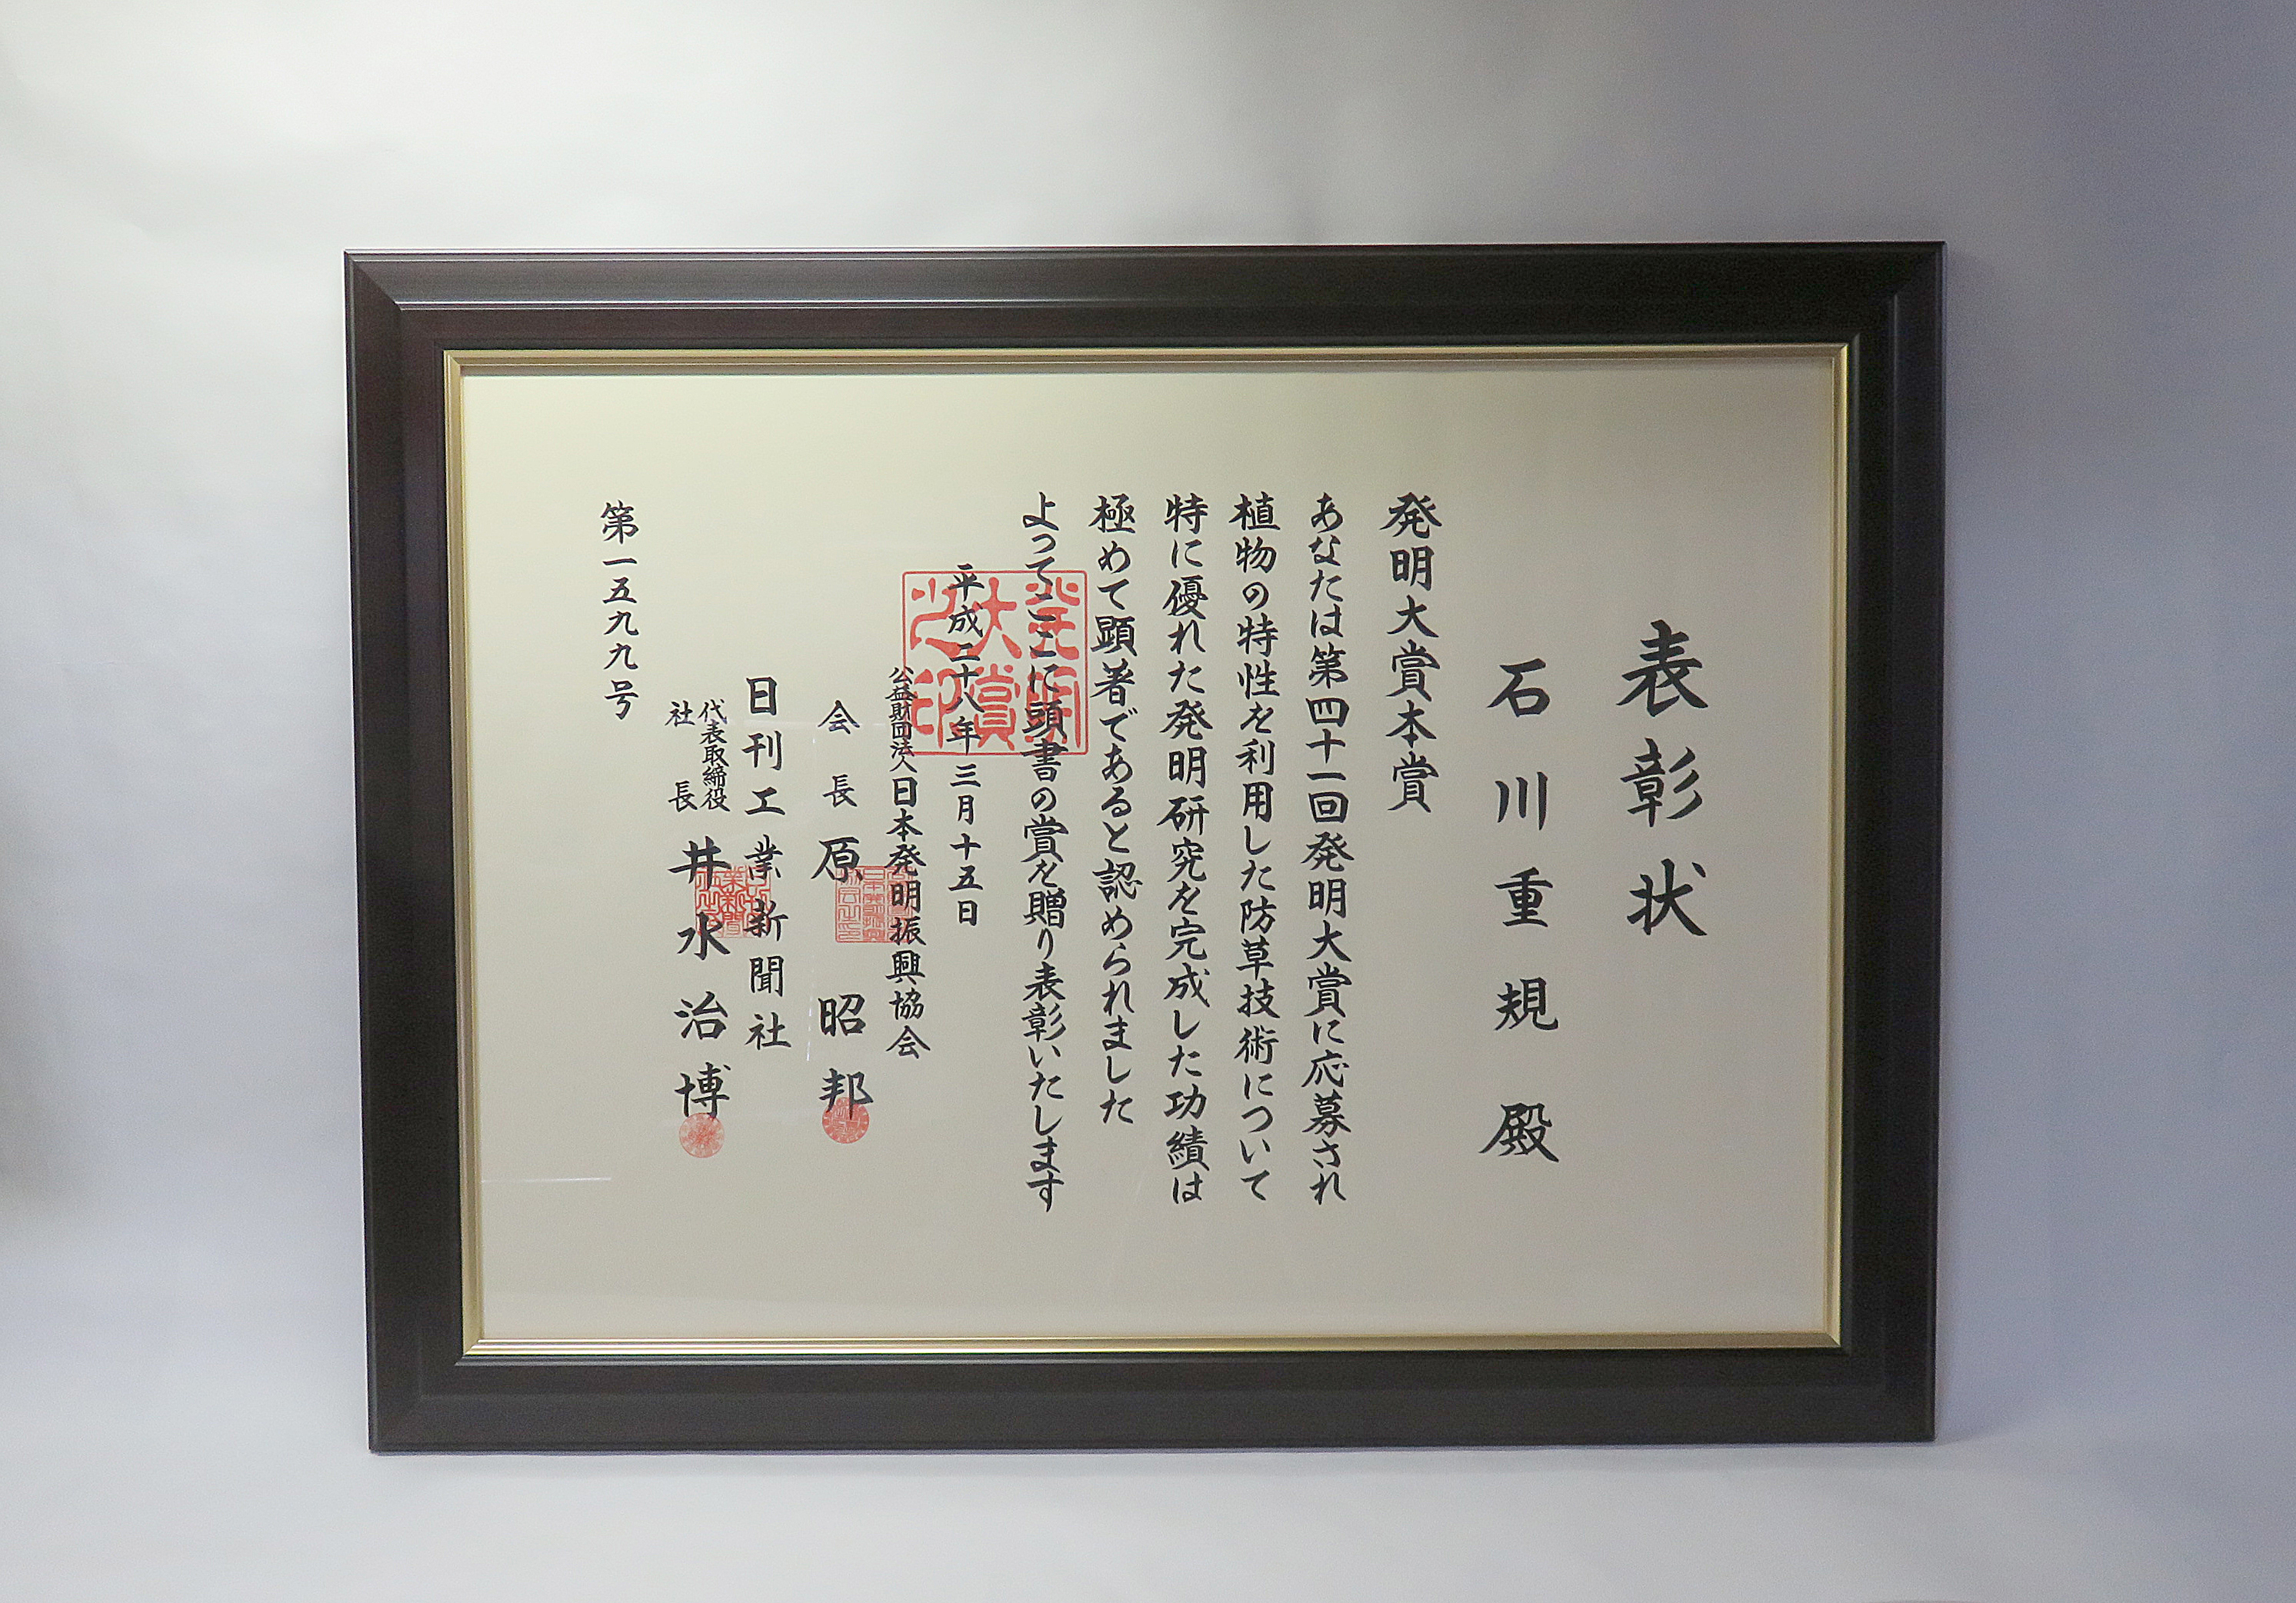 表彰状
石川重規 殿
発明大賞本賞
あなたは第四十一回発明大賞に応募され
植物の特性を利用した防草技術について
特に優れた発明研究を完成した功績は
極めて顕著であると認められました
よってここに頭書の賞を贈り表彰いたします
平成二十八年三月十五日
発明大賞之印
公益財団法人日本発明振興協会
会長 原 昭邦
日刊工業新聞社
代表取締役社長 井水治博
第一五九九号